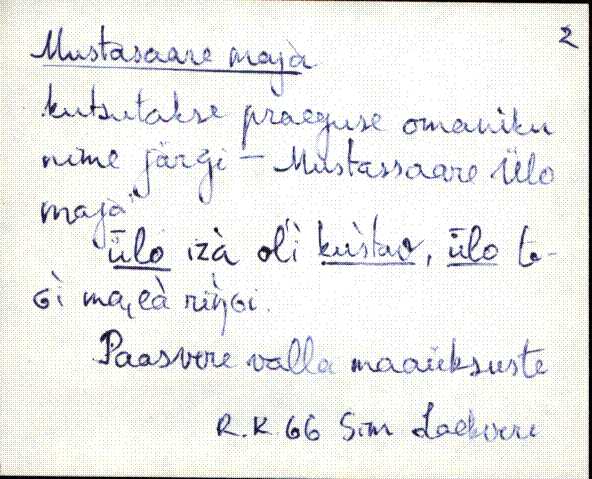 2
Mustasaare maja
kutsutakse praeguse omaniku
nime järgi – Mustassaare Ülo
maja
ülo izà ol'i kùstav, ülo te-
Gi ma, eà riŋGi.
Paasvere valla maaüksuste
R.K 66 Sim Laekvere